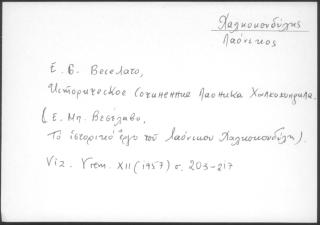 Χαλκοκονδύλης
Λαόνικος
Е. Б. Веселаго,
Историческое сочинение Лаоника Халкокондила.
(Ε. Μπ. Βεσέλαγο,
Το ιστορικό έργο του Λαόνικου Χαλκοκονδύλη).
Viz. Vrem. XII (1957) σ. 203-217